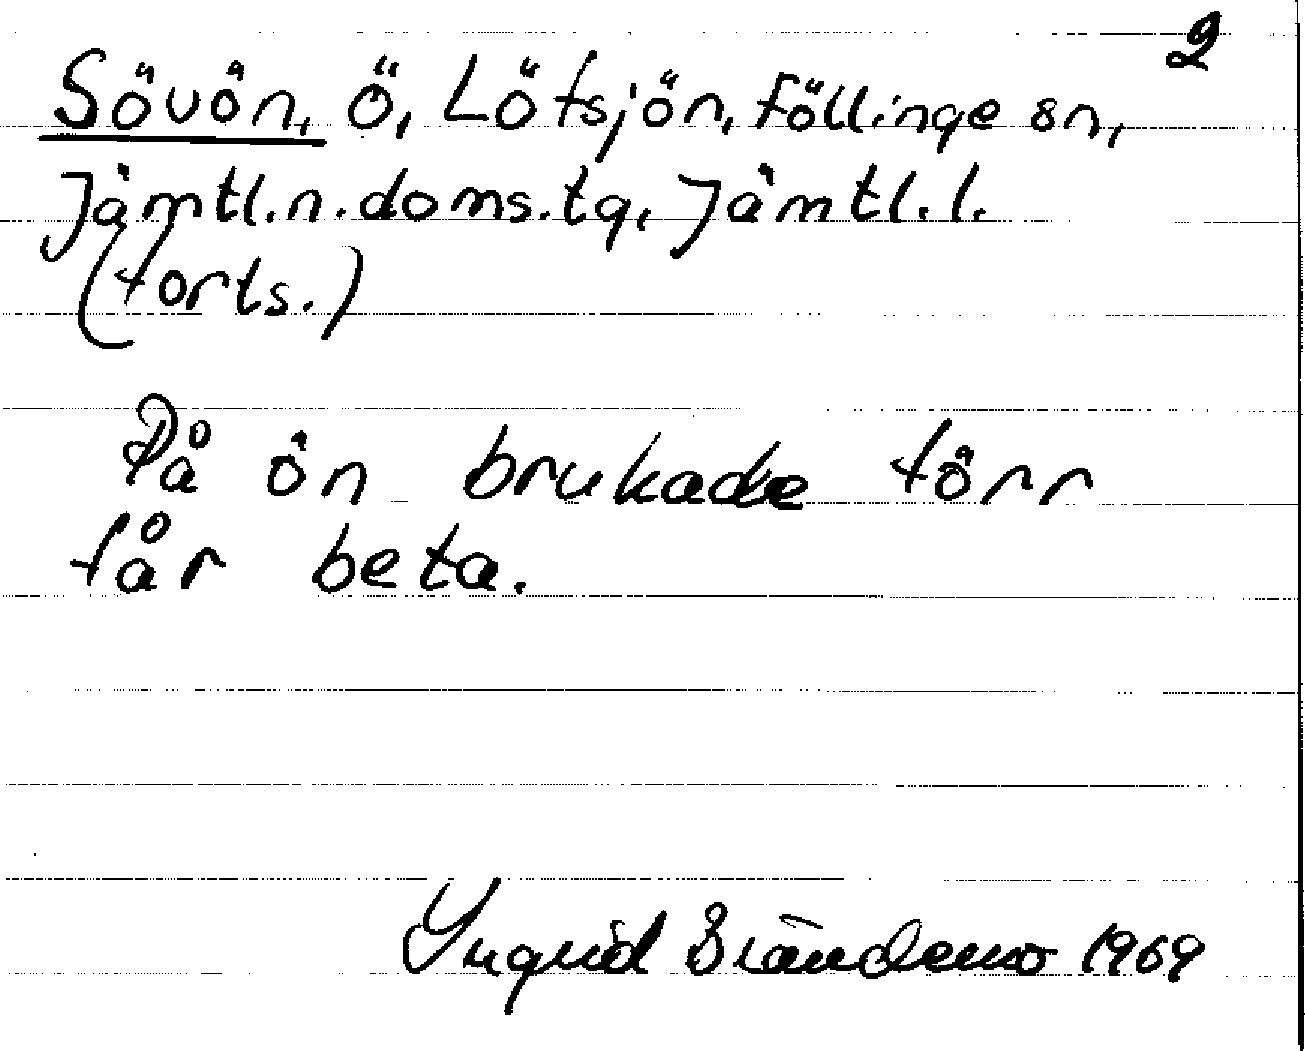 2
Sövön, ö, Lötsjön, Föllinge sn,
Jämtl.n.doms.tg, Jämtl.l.
(forts.)
På ön brukade förr
får beta.
Ingrid Brändemo 1969